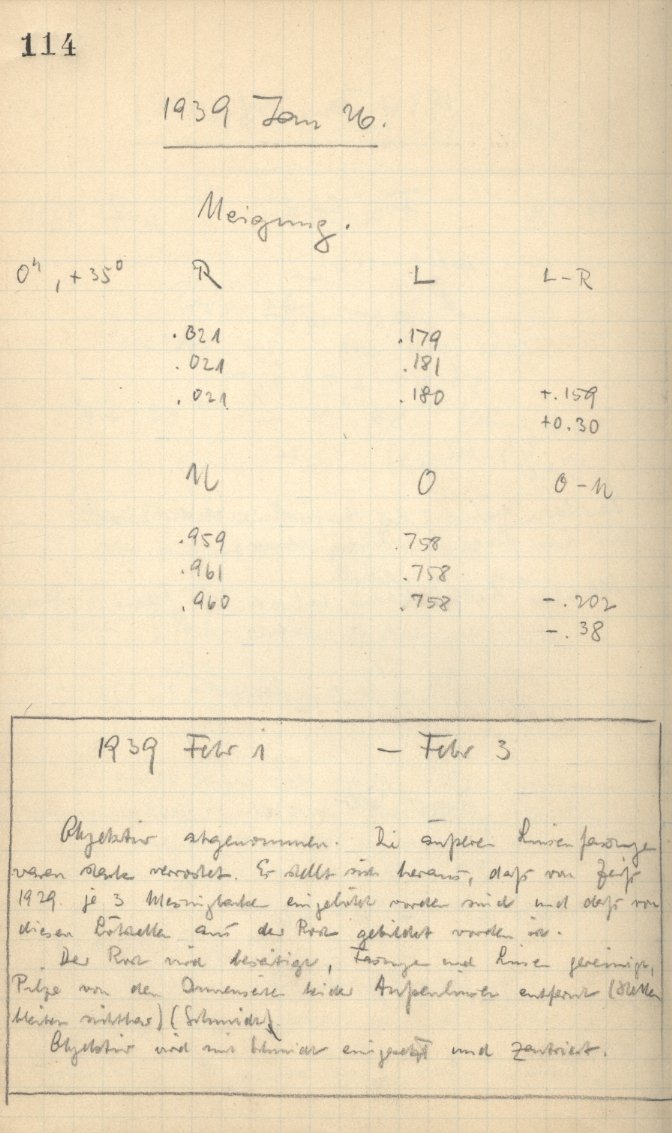 114
1939 Jan 26.
Neigung.
0ʰ, +35° R L L-R
.021 .179
.021 .181
.021 .180 +.159
+0.30
N O O-N
.959 .758
.961 .758
.960 .758 -.202
-.38
1939 Febr 1 - Febr 3
Objektiv abgenommen. Die äußeren Linsenfassungen
waren stark verrostet. Er stellt sich heraus, daß von Zeiß
1929 je 3 eingelötet worden sind und daß von
diesen Lötstellen aus der Rost gebildet worden ist.
Der Rost wird beseitigt, Fassungen und Linsen gereinigt,
Pilze von den Innenseiten beider Außenlinsen entfernt (Stellen
bleiben sichtbar) (Schmidt).
Objektiv wird mit Schmidt eingesetzt und zentriert.